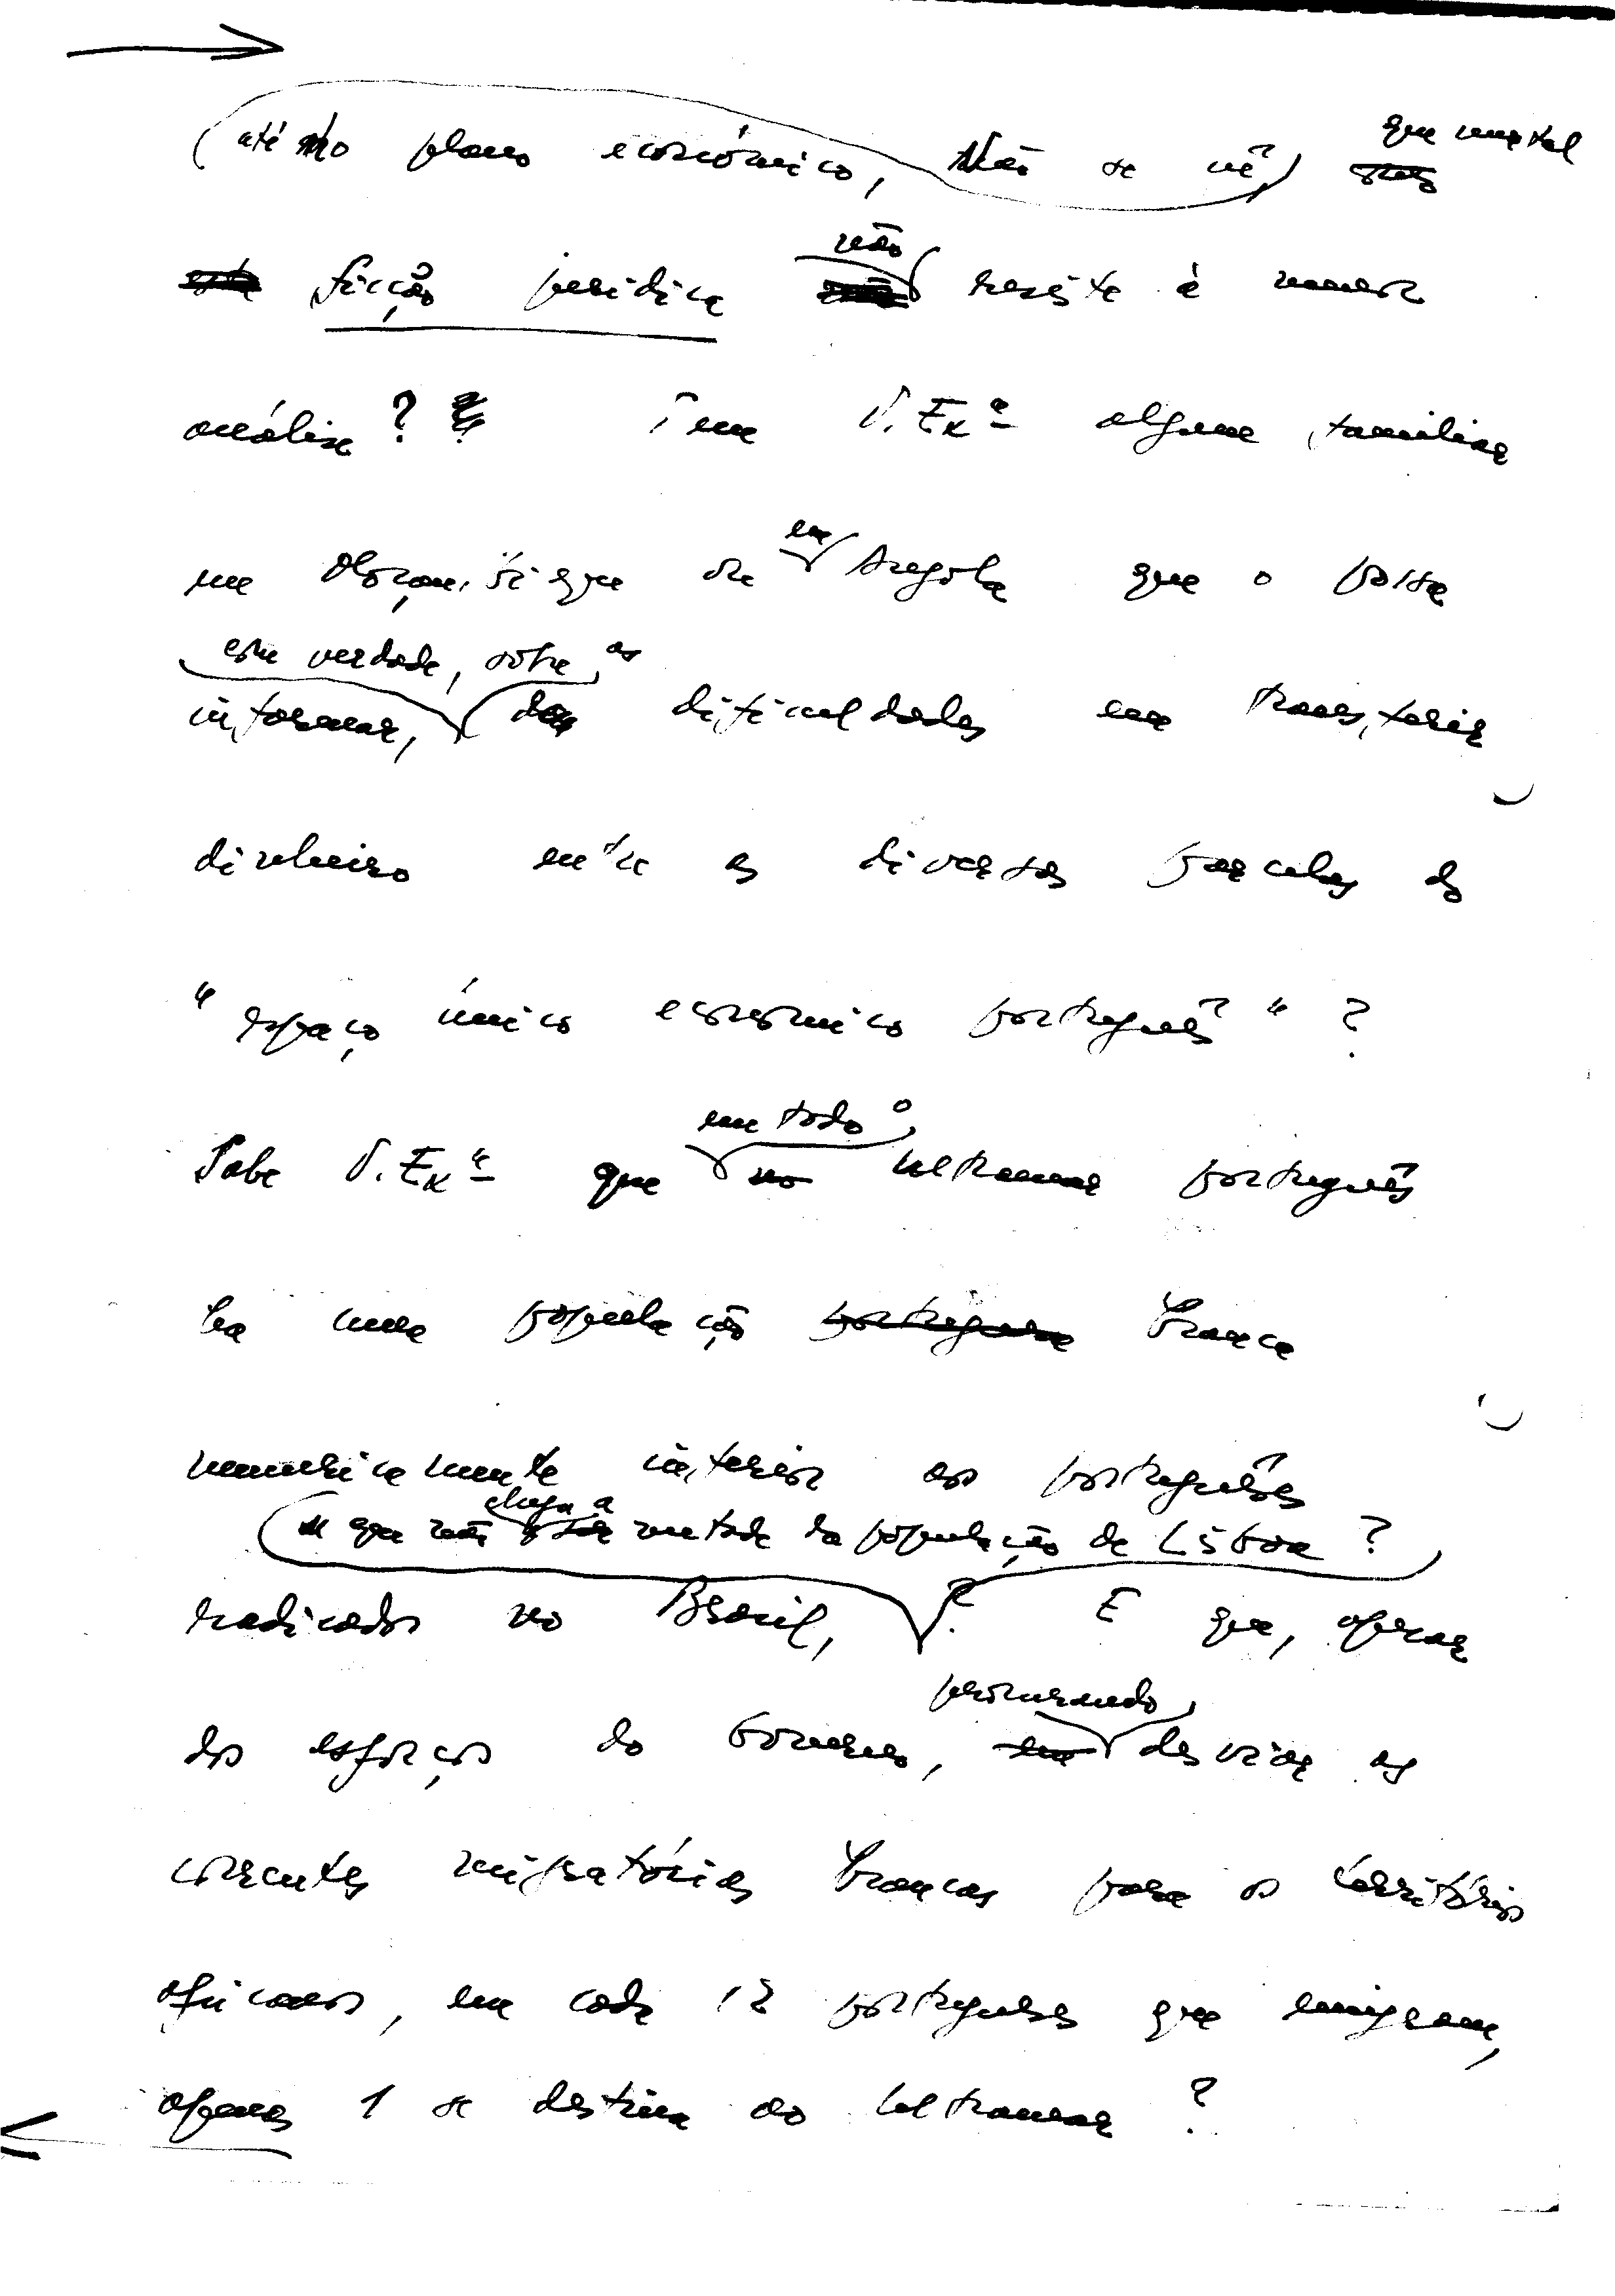 (até no plano económico, não se vê) que uma tal
ficção jurídica não resiste à menor
análise? Tem V. Exª algum familiar
em Moçambique ou em Angola que o possa
em verdade, sobre as
informar, dificuldades em transferir
dinheiro entre as diversas parcelas do
"espaço único económico português"?
em todo o
Sabe V. Exª que no Ultramar português
há uma população portuguesa branca
numericamente inferior aos portugueses
que não chega a metade da população de Lisboa?
radicados no Brasil, ? E que, apesar
procurando
dos esforços do Governo, em desviar as
correntes migratórias brancas para os territórios
africanos, em cada 12 portugueses que emigram,
apenas 1 se destina ao Ultramar?